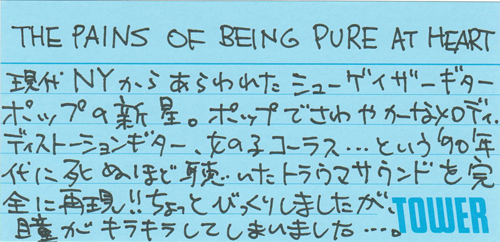 THE PAINS OF BEING PURE AT HEART
現代NYからあらわれたシューゲイザーギター
ポップの新星。ポップでさわやかなメロディ、
ディストーションギター、女の子コーラス…という'90年
代に死ぬほど聴いたトラウマサウンドを完
全に再現!!ちょっとびっくりしましたが、
瞳がキラキラしてしまいました…。
TOWER